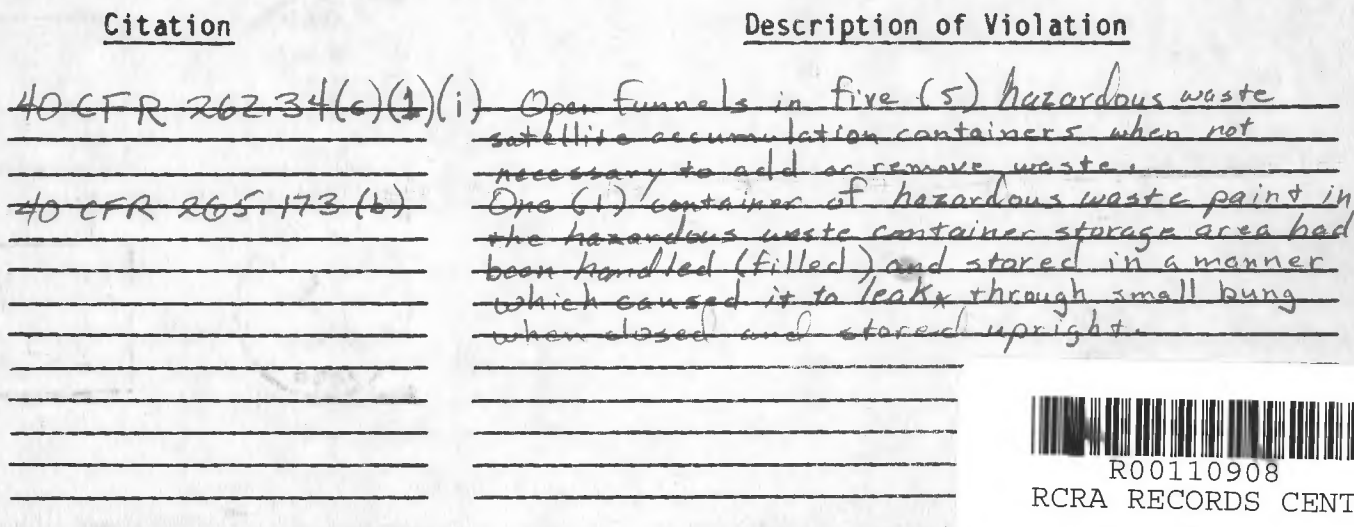 Citation Description of Violation
40 CFR 262.34(c)(1)(i) Open funnels in five (5) hazardous waste
satellite accumulation containers when not
necessary to add or remove waste.
40 CFR 265.173 (b) One (1) container of hazardous waste paint in
the hazardous waste container storage area had
been handled (filled) and stored in a manner
which caused it to leak, through small bung
when closed and stored upright.
R00110908
RCRA RECORDS CENT